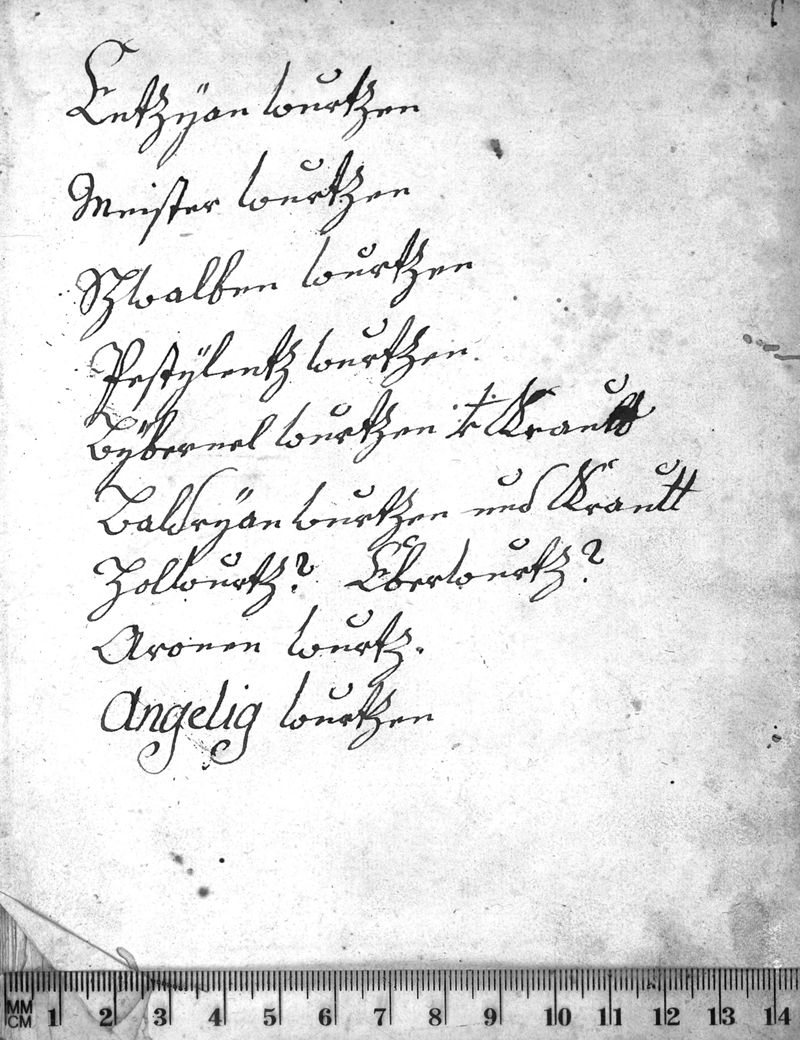 Entzÿan wurtzen
Meister wurtzen
Schwalben wurtzen
Pestÿlentz wurtzen
Bÿbernel wurtzen Krautt
Baldrÿan wurtzen und Krautt
Holwurtz? Eberwurtz?
Aronen wurtz.
Angelig wurtzen
MM
CM 1 2 3 4 5 6 7 8 9 10 11 12 13 14